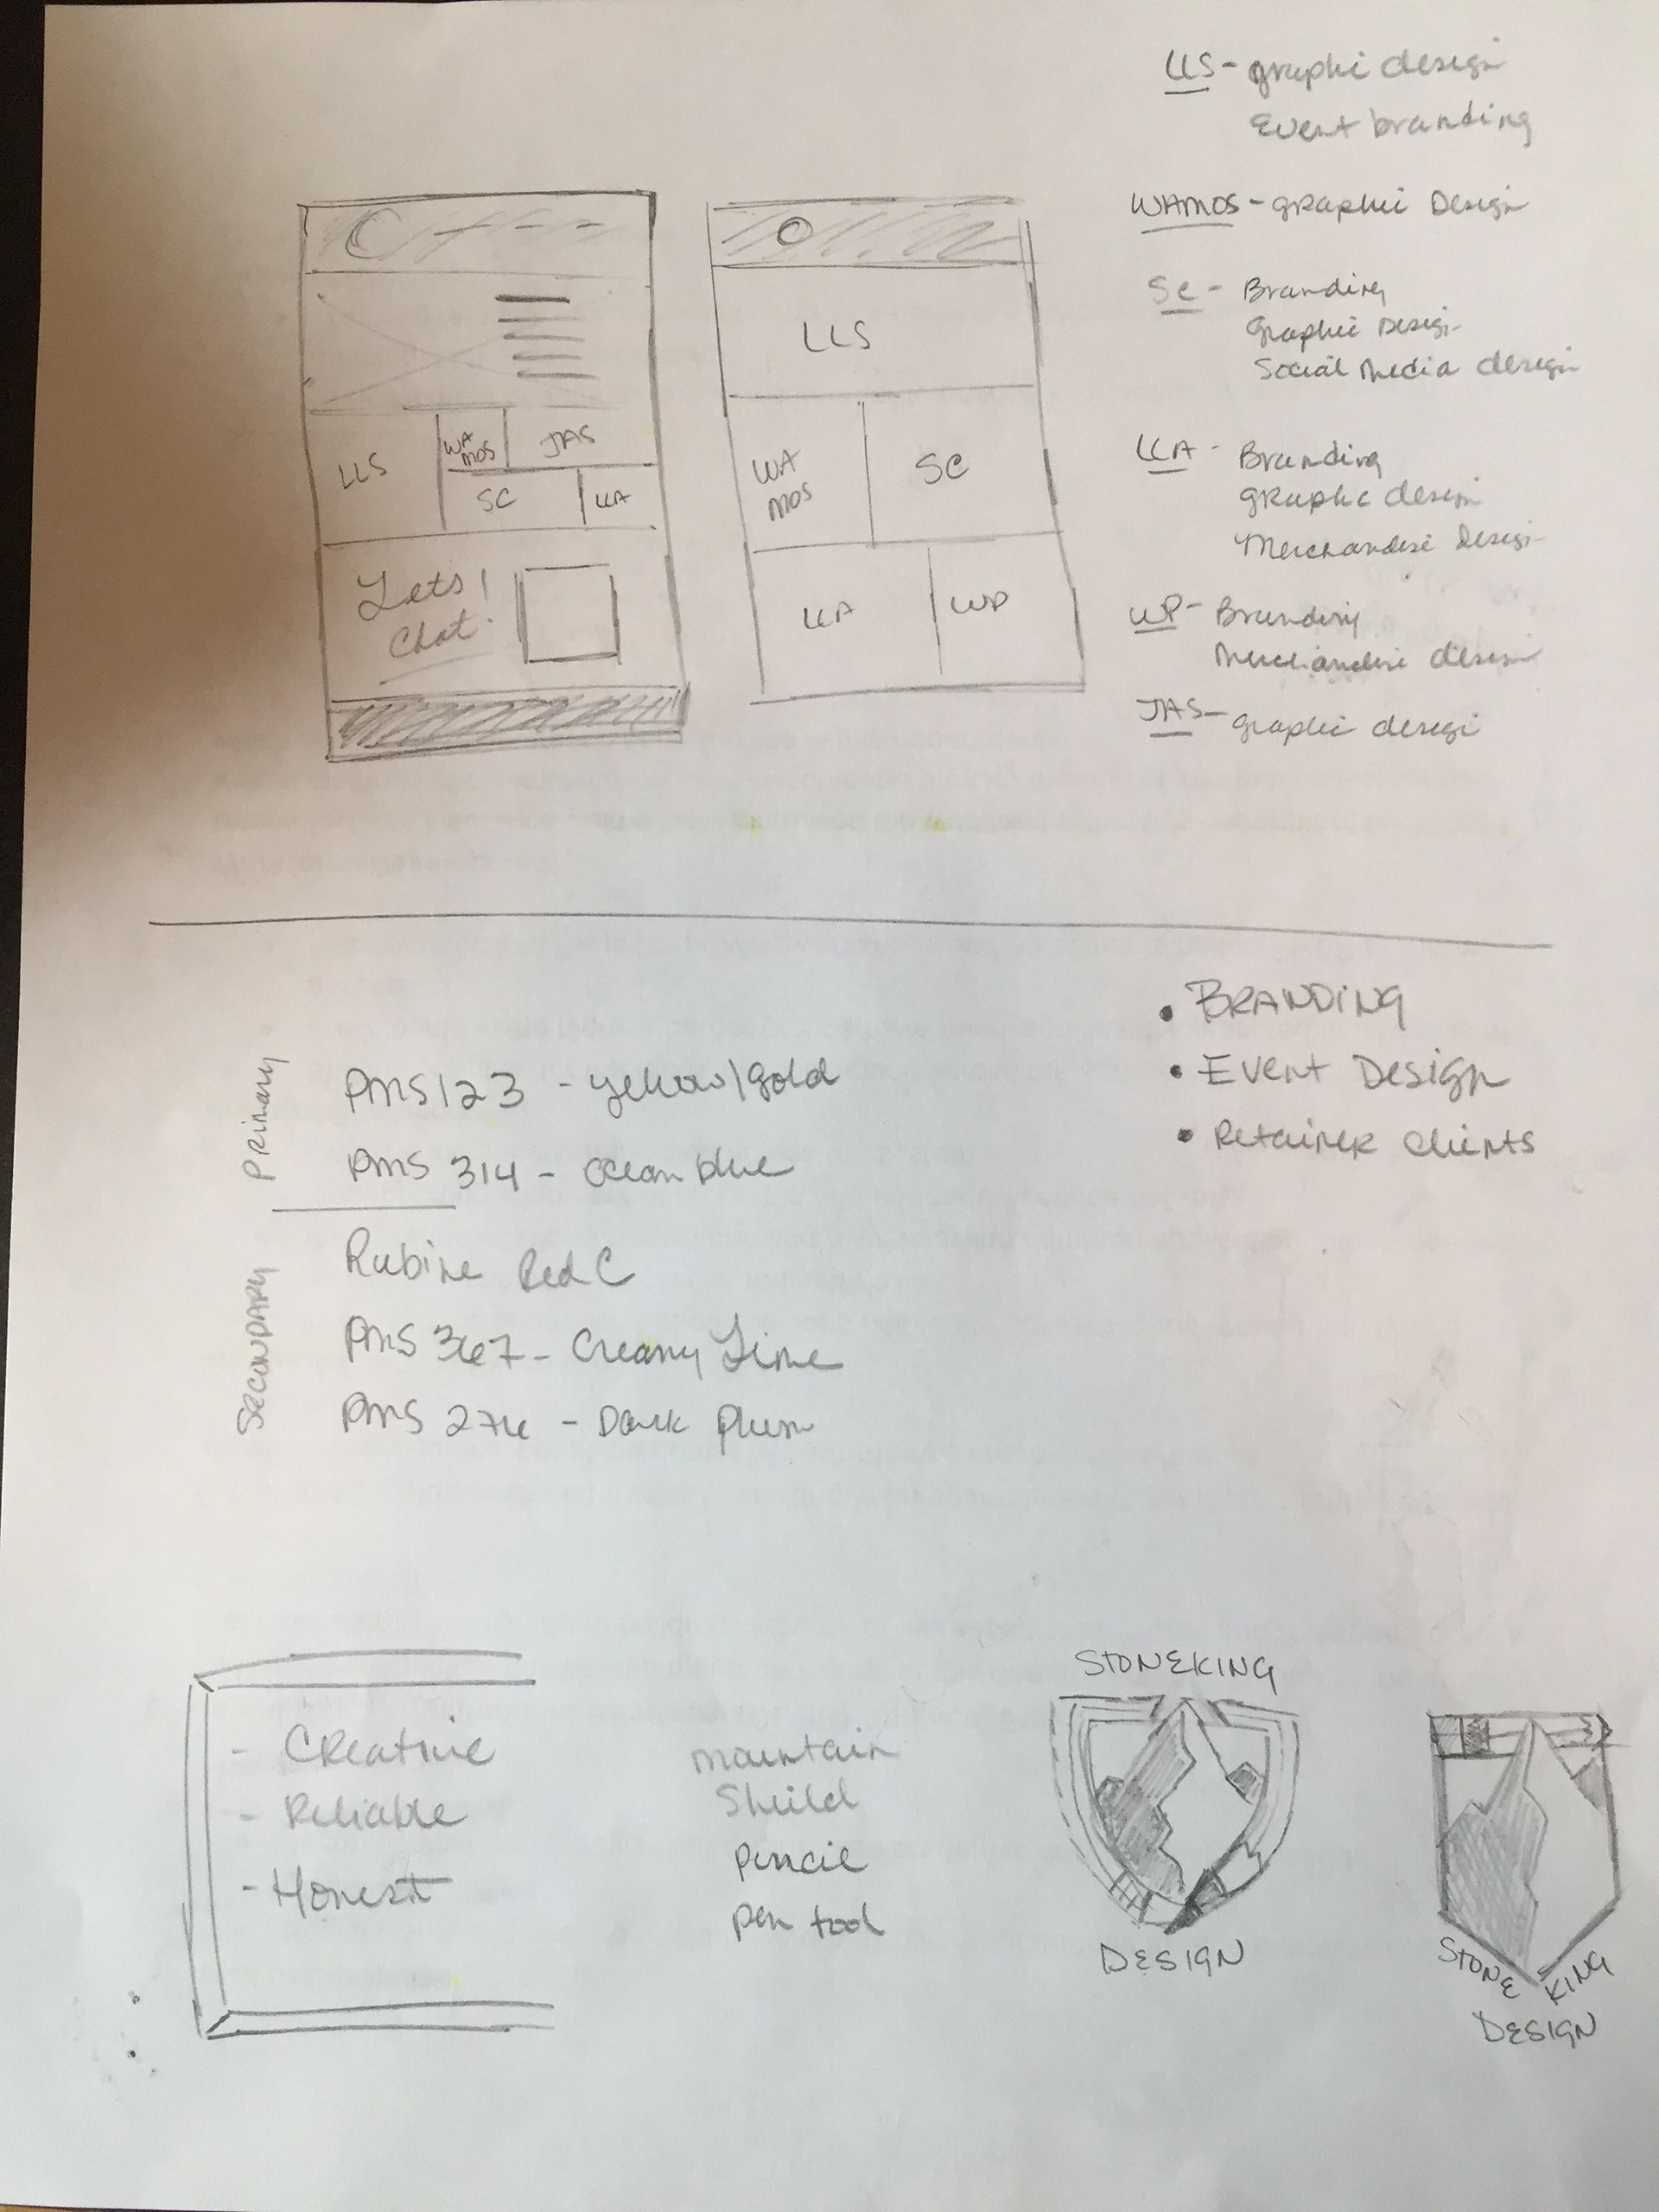 LLS - graphic design
Event branding
WAMOS - graphic Design
SC - Branding
Graphic Design
Social Media design
LLA - Branding
graphic design
Merchandise Design
WP - Branding
Merchandise design
JAS - graphic design
LLS
WA
MOS
JAS
SC
LLA
Lets!
Chat.
LLS
WA
MOS
SC
LLA
WP
• BRANDING
• Event Design
• Retainer Clients
Primary
PMS 123 - yellow/gold
PMS 314 - ocean blue
SECONDARY
Rubine Red C
PMS 367 - Creamy Lime
PMS 276 - Dark Plum
- Creative
- Reliable
- Honest
mountain
Sheild
pencil
pen tool
STONEKING
DESIGN
STONE KING
DESIGN